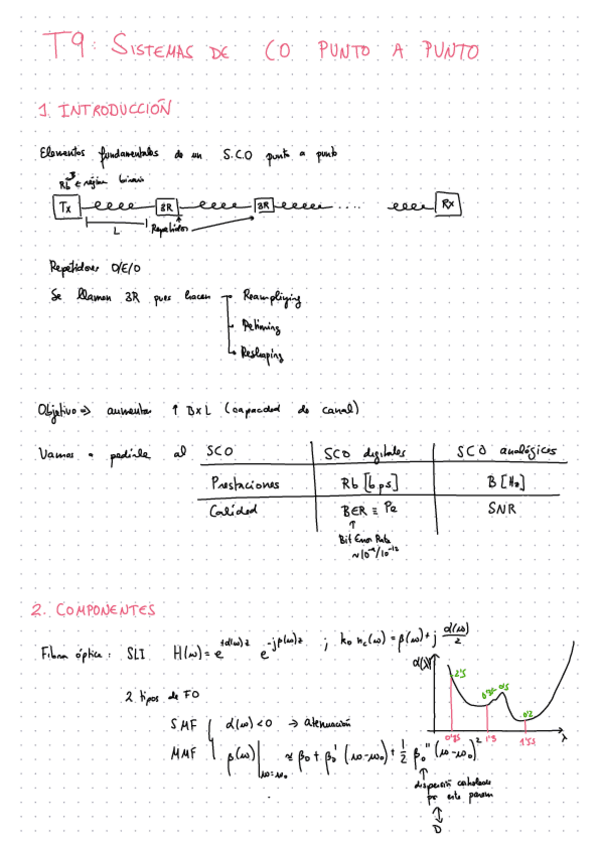 T9: SISTEMAS DE CO PUNTO A PUNTO
1. INTRODUCCIÓN
Elementos fundamentales de un S.C.O punto a punto
Rb régimen binario
Tx 3R 3R .... Rx
L Repetidor
Repetidores O/E/O
Se llaman 3R pues hacen Reampliying
Retiming
Reshaping
Objetivo => aumentar ↑ B×L (capacidad de canal)
Vamos a pedirle al SCO SCO digitales SCO analógicos
Prestaciones Rb [bps] B [Hz]
Calidad BER ≡ Pe SNR
↑
Bit Error Rate
~10⁻⁹/10⁻¹²
2. COMPONENTES
Fibra óptica: SLI H(ω) = e^{+α(ω)z} e^{-jβ(ω)z} ; k₀ n_c(ω) = β(ω) + j α(ω)/2
α(λ)
2'5 0'5 0'2
0'85 1'3 1'55 λ
2 tipos de FO
SMF α(ω) < 0 → atenuación
MMF β(ω)|ω=ω₀ ≈ β₀ + β₀' (ω-ω₀) + 1/2 β₀'' (ω-ω₀)²
↑
dispersión
por este param
↕
D